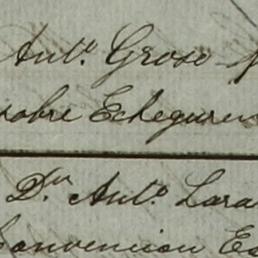 Ant.º Groso
sobre Echeguren
Dn. Ant.º Lara
Convencion Es